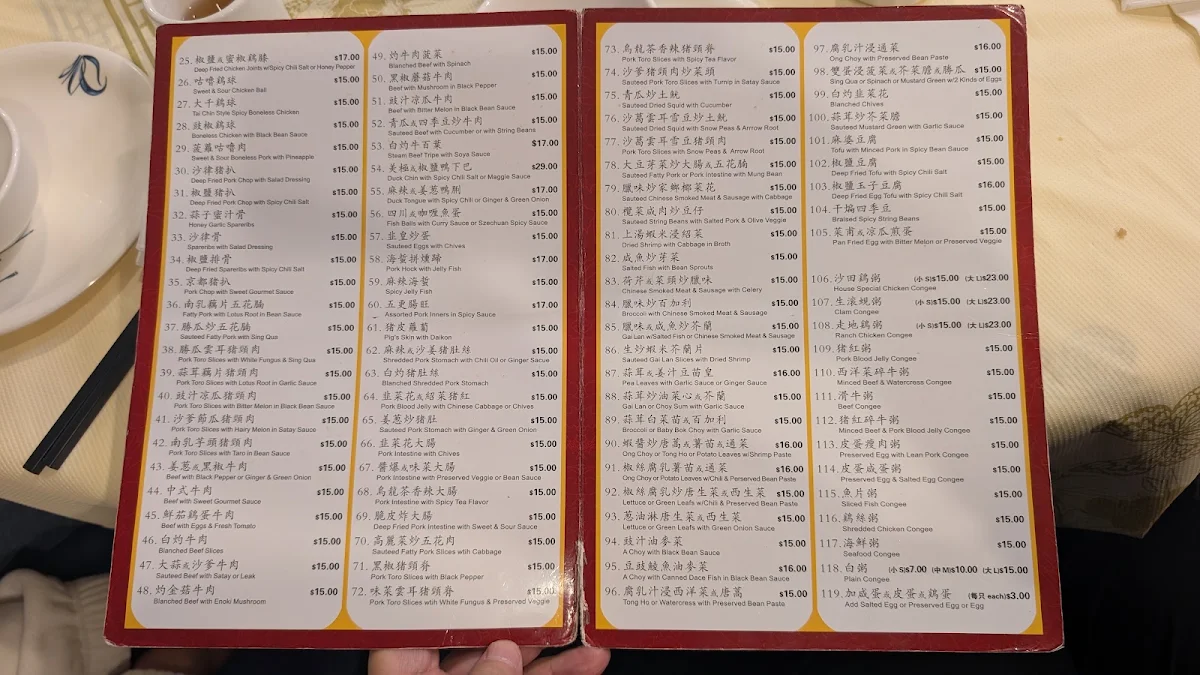 25. 椒鹽&蜜椒鷄膝 $17.00
Deep Fried Chicken Joints w/Spicy Chili Salt or Honey Pepper
26. 咕嚕鷄球 $15.00
Sweet & Sour Chicken Ball
27. 大千鷄球 $15.00
Tai Chin Style Spicy Boneless Chicken
28. 豉椒鷄球 $15.00
Boneless Chicken with Black Bean Sauce
29. 菠蘿咕嚕肉 $15.00
Sweet & Sour Boneless Pork with Pineapple
30. 沙律豬扒 $15.00
Deep Fried Pork Chop with Salad Dressing
31. 椒鹽豬扒 $15.00
Deep Fried Pork Chop with Spicy Chili Salt
32. 蒜子蜜汁骨 $15.00
Honey Garlic Spareribs
33. 沙律骨 $15.00
Spareribs with Salad Dressing
34. 椒鹽排骨 $15.00
Deep Fried Spareribs with Spicy Chili Salt
35. 京都豬扒 $15.00
Pork Chop with Sweet Gourmet Sauce
36. 南乳藕片五花腩 $15.00
Fatty Pork with Lotus Root in Bean Sauce
37. 勝瓜炒五花腩 $15.00
Sauteed Fatty Pork with Sing Qua
38. 勝瓜雲耳豬頸肉 $15.00
Pork Toro Slices with White Fungus & Sing Qua
39. 蒜茸藕片豬頸肉 $15.00
Pork Toro Slices with Lotus Root in Garlic Sauce
40. 豉汁凉瓜豬頸肉 $15.00
Pork Toro Slices with Bitter Melon in Black Bean Sauce
41. 沙爹節瓜豬頸肉 $15.00
Pork Toro Slices with Hairy Melon in Satay Sauce
42. 南乳芋頭豬頸肉 $15.00
Pork Toro Slices with Taro in Bean Sauce
43. 姜葱&黑椒牛肉 $15.00
Beef with Black Pepper or Ginger & Green Onion
44. 中式牛肉 $15.00
Beef with Sweet Gourmet Sauce
45. 鮮茄鷄蛋牛肉 $15.00
Beef with Eggs & Fresh Tomato
46. 白灼牛肉 $15.00
Blanched Beef Slices
47. 大蒜&沙爹牛肉 $15.00
Sauteed Beef with Satay or Leak
48. 灼金菇牛肉 $15.00
Blanched Beef with Enoki Mushroom
49. 灼牛肉菠菜 $15.00
Blanched Beef with Spinach
50. 黑椒蘑菇牛肉 $15.00
Beef with Mushroom in Black Pepper
51. 豉汁凉瓜牛肉 $15.00
Beef with Bitter Melon in Black Bean Sauce
52. 青瓜&四季豆炒牛肉 $15.00
Sauteed Beef with Cucumber or with String Beans
53. 白灼牛百葉 $17.00
Steam Beef Tripe with Soya Sauce
54. 美極&椒鹽鴨下巴 $29.00
Duck Chin with Spicy Chili Salt or Maggie Sauce
55. 麻辣&姜葱鴨脷 $17.00
Duck Tongue with Spicy Chili or Ginger & Green Onion
56. 四川&咖喱魚蛋 $15.00
Fish Balls with Curry Sauce or Szechuan Spicy Sauce
57. 韭皇炒蛋 $15.00
Sauteed Eggs with Chives
58. 海蜇拼燻蹄 $17.00
Pork Hock with Jelly Fish
59. 麻辣海蜇 $15.00
Spicy Jelly Fish
60. 五更腸旺 $17.00
Assorted Pork Inners in Spicy Sauce
61. 豬皮蘿蔔 $15.00
Pig's Skin with Daikon
62. 麻辣&沙姜豬肚絲 $15.00
Shredded Pork Stomach with Chili Oil or Ginger Sacue
63. 白灼豬肚絲 $15.00
Blanched Shredded Pork Stomach
64. 韭菜花&紹菜豬紅 $15.00
Pork Blood Jelly with Chinese Cabbage or Chives
65. 姜葱炒豬肚 $15.00
Sauteed Pork Stomach with Ginger & Green Onion
66. 韭菜花大腸 $15.00
Pork Intestine with Chives
67. 醬爆&味菜大腸 $15.00
Pork Intestine with Preserved Veggie or Bean Sauce
68. 烏龍茶香辣大腸 $15.00
Pork Intestine with Spicy Tea Flavor
69. 脆皮炸大腸 $15.00
Deep Fried Pork Intestine with Sweet & Sour Sauce
70. 高麗菜炒五花肉 $15.00
Sauteed Fatty Pork Slices with Cabbage
71. 黑椒豬頸脊 $15.00
Pork Toro Slices with Black Pepper
72. 味菜雲耳豬頸脊 $15.00
Pork Toro Slices with White Fungus & Preserved Veggie
73. 烏龍茶香辣豬頸脊 $15.00
Pork Toro Slices with Spicy Tea Flavor
74. 沙爹豬頸肉炒菜頭 $15.00
Sauteed Pork Toro Slices with Turnip in Satay Sauce
75. 青瓜炒土魷 $15.00
Sauteed Dried Squid with Cucumber
76. 沙葛雲耳雪豆炒土魷 $15.00
Sauteed Dried Squid with Snow Peas & Arrrow Root
77. 沙葛雲耳雪豆豬頸肉 $15.00
Pork Toro Slices with Snow Peas & Arrow Root
78. 大豆芽菜炒大腸&五花腩 $15.00
Sauteed Fatty Pork or Pork Intestine with Mung Bean
79. 臘味炒家鄉椰菜花 $15.00
Sauteed Chinese Smoked Meat & Sausage with Cabbage
80. 欖菜咸肉炒豆仔 $15.00
Sauteed String Beans with Salted Pork & Olive Veggie
81. 上湯蝦米浸紹菜 $15.00
Dried Shrimp with Cabbage in Broth
82. 咸魚炒芽菜 $15.00
Salted Fish with Bean Sprouts
83. 荷芹&菜頭炒臘味 $15.00
Chinese Smoked Meat & Sausage with Celery
84. 臘味炒百加利 $15.00
Broccoli with Chinese Smoked Meat & Sausage
85. 臘味&咸魚炒芥蘭 $15.00
Gai Lan w/Salted Fish or Chinese Smoked Meat & Sausage
86. 生炒蝦米芥蘭片 $15.00
Sauteed Gai Lan Slices with Dried Shrimp
87. 蒜茸&姜汁豆苗皇 $16.00
Pea Leaves with Garlic Sauce or Ginger Sauce
88. 蒜茸炒油菜心&芥蘭 $15.00
Gai Lan or Choy Sum with Garlic Sauce
89. 蒜茸白菜苗&百加利 $15.00
Broccoli or Baby Bok Choy with Garlic Sauce
90. 蝦醬炒唐萵&薯苗&通菜 $16.00
Ong Choy or Tong Ho or Potato Leaves w/Shrimp Paste
91. 椒絲腐乳薯苗&通菜 $16.00
Ong Choy or Potato Leaves w/Chili & Perserved Bean Paste
92. 椒絲腐乳炒唐生菜&西生菜 $15.00
Lettuce or Green Leafs w/Chili & Preserved Bean Paste
93. 葱油淋唐生菜&西生菜 $15.00
Lettuce or Green Leafs with Green Onion Sauce
94. 豉汁油麥菜 $15.00
A Choy with Black Bean Sauce
95. 豆豉鯪魚油麥菜 $16.00
A Choy with Canned Dace Fish in Black Bean Sauce
96. 腐乳汁浸西洋菜&唐萵 $15.00
Tong Ho or Watercress with Preserved Bean Paste
97. 腐乳汁浸通菜 $16.00
Ong Choy with Preserved Bean Paste
98. 雙蛋浸菠菜&芥菜膽&勝瓜 $15.00
Sing Qua or Spinach or Mustard Green w/2 Kinds of Eggs
99. 白灼韭菜花 $15.00
Blanched Chives
100. 蒜茸炒芥菜膽 $15.00
Sauteed Mustard Green with Garlic Sauce
101. 麻婆豆腐 $15.00
Tofu with Minced Pork in Spicy Bean Sauce
102. 椒鹽豆腐 $15.00
Deep Fried Tofu with Spicy Chili Salt
103. 椒鹽玉子豆腐 $16.00
Deep Fried Egg Tofu with Spicy Chili Salt
104. 干煸四季豆 $15.00
Braised Spicy String Beans
105. 菜甫&凉瓜煎蛋 $15.00
Pan Fried Egg with Bitter Melon or Preserved Veggie
106. 沙田鷄粥 (小 S)$15.00 (大 L)$23.00
House Special Chicken Congee
107. 生滾蜆粥 (小 S)$15.00 (大 L)$23.00
Clam Congee
108. 走地鷄粥 (小 S)$15.00 (大 L)$23.00
Ranch Chicken Congee
109. 豬紅粥 $15.00
Pork Blood Jelly Congee
110. 西洋菜碎牛粥 $15.00
Minced Beef & Watercress Congee
111. 滑牛粥 $15.00
Beef Congee
112. 豬紅碎牛粥 $15.00
Minced Beef & Pork Blood Jelly Congee
113. 皮蛋瘦肉粥 $15.00
Preserved Egg with Lean Pork Congee
114. 皮蛋咸蛋粥 $15.00
Preserved Egg & Salted Egg Congee
115. 魚片粥 $15.00
Sliced Fish Congee
116. 鷄絲粥 $15.00
Shredded Chicken Congee
117. 海鮮粥 $15.00
Seafood Congee
118. 白粥 (小 S)$7.00 (中 M)$10.00 (大 L)$15.00
Plain Congee
119. 加咸蛋&皮蛋&鷄蛋 (每只 each)$3.00
Add Salted Egg or Preserved Egg or Egg